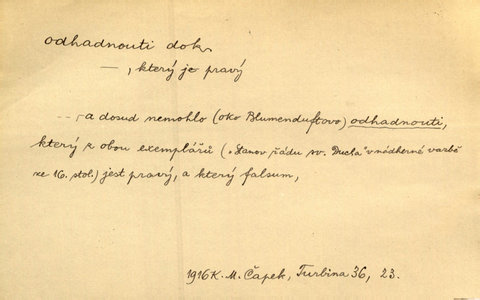 odhadnouti dok.
—, který je pravý
– – a dosud nemohlo (oko Blumenduftovo) odhadnouti,
který z obou exemplářů („Stanov řádu sv. Ducha" v nádherné vazbě
ze 16. stol.) jest pravý, a který falsum,
1916 K. M. Čapek, Turbina 36, 23.